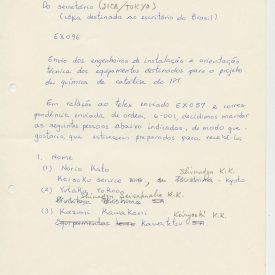 Do secretário (JICA/TOKYO)
(cópia destinada ao escritório do Brasil)
EX096
Envio dos engenheiros de instalação e orientação
técnica dos equipamentos destinados para o projeto
da química de catálise do IPT
Em relação ao telex enviado EX057 e corres-
pondência enviada de ordem 6-001, decidimos mandar
as seguintes pessoas abaixo indicadas, de modo que
gostaria que estivessem preparados para recebê-los
1. Nome
(1) Norio Kato Shimadzu K.K.
Keisoku service Kyoto
(2) Yutaka
Shimadzu Seisakusho K.K.
(3) Kazumi Kawakami K.K.
Equipamentos Kawatetsu